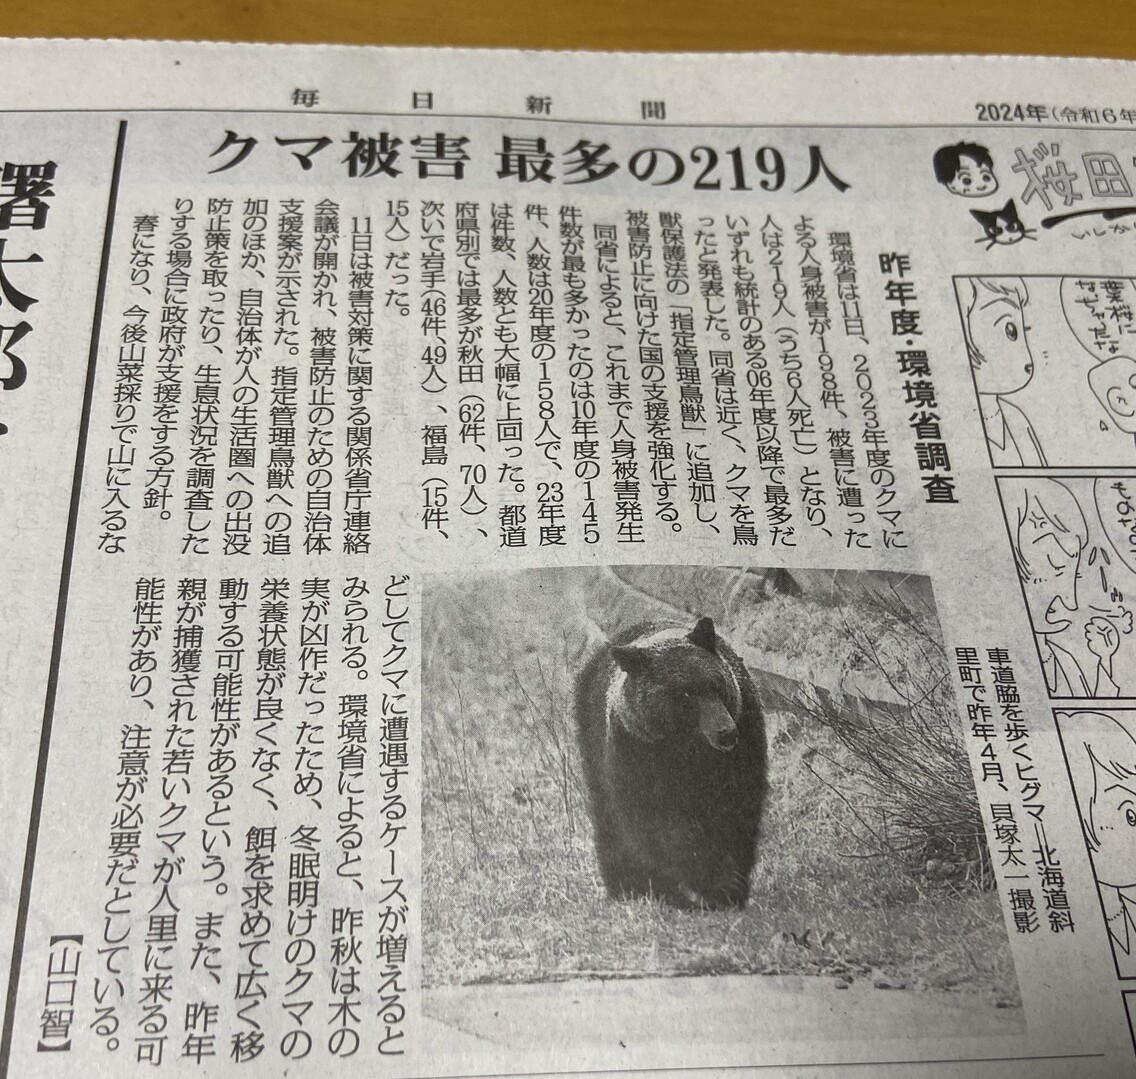 毎日新聞
2024年(令和6年
クマ被害 最多の219人
昨年度・環境省調査
環境省は11日、2023年度のクマに
よる人身被害が198件、被害に遭った
人は219人(うち6人死亡)となり、
いずれも統計のある06年度以降で最多だ
ったと発表した。同省は近く、クマを鳥
獣保護法の「指定管理鳥獣」に追加し、
被害防止に向けた国の支援を強化する。
同省によると、これまで人身被害発生
件数が最も多かったのは10年度の145
件、人数は20年度の158人で、23年度
は件数、人数とも大幅に上回った。都道
府県別では最多が秋田(62件、70人)、
次いで岩手(46件、49人)、福島(15件、
15人)だった。
11日は被害対策に関する関係省庁連絡
会議が開かれ、被害防止のための自治体
支援案が示された。指定管理鳥獣への追
加のほか、自治体が人の生活圏への出没
防止策を取ったり、生息状況を調査した
りする場合に政府が支援をする方針。
春になり、今後山菜採りで山に入るな
どしてクマに遭遇するケースが増えると
みられる。環境省によると、昨秋は木の
実が凶作だったため、冬眠明けのクマの
栄養状態が良くなく、餌を求めて広く移
動する可能性があるという。また、昨年
親が捕獲された若いクマが人里に来る可
能性があり、注意が必要だとしている。
【山口智】
車道脇を歩くヒグマ＝北海道斜
里町で昨年4月、貝塚太一撮影
桜田
いしか
葉桜に
なっちゃったな
太郎